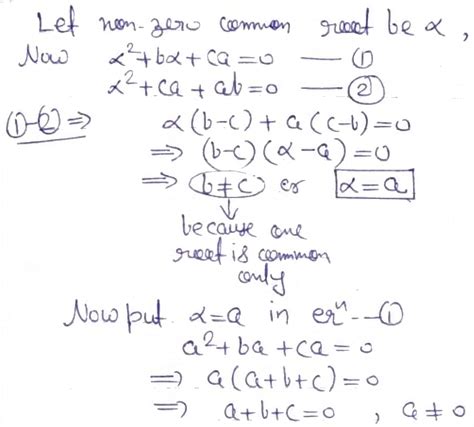 Let non-zero common root be α,
Now α²+bα+ca=0 —— ①
α²+cα+ab=0 —— ②
①-② ⇒ α(b-c)+a(c-b)=0
⇒ (b-c)(α-a)=0
⇒ b≠c or α=a
↓
because one
root is common
only
Now put α=a in eqⁿ --①
a²+ba+ca=0
⇒ a(a+b+c)=0
⇒ a+b+c=0 , a≠0